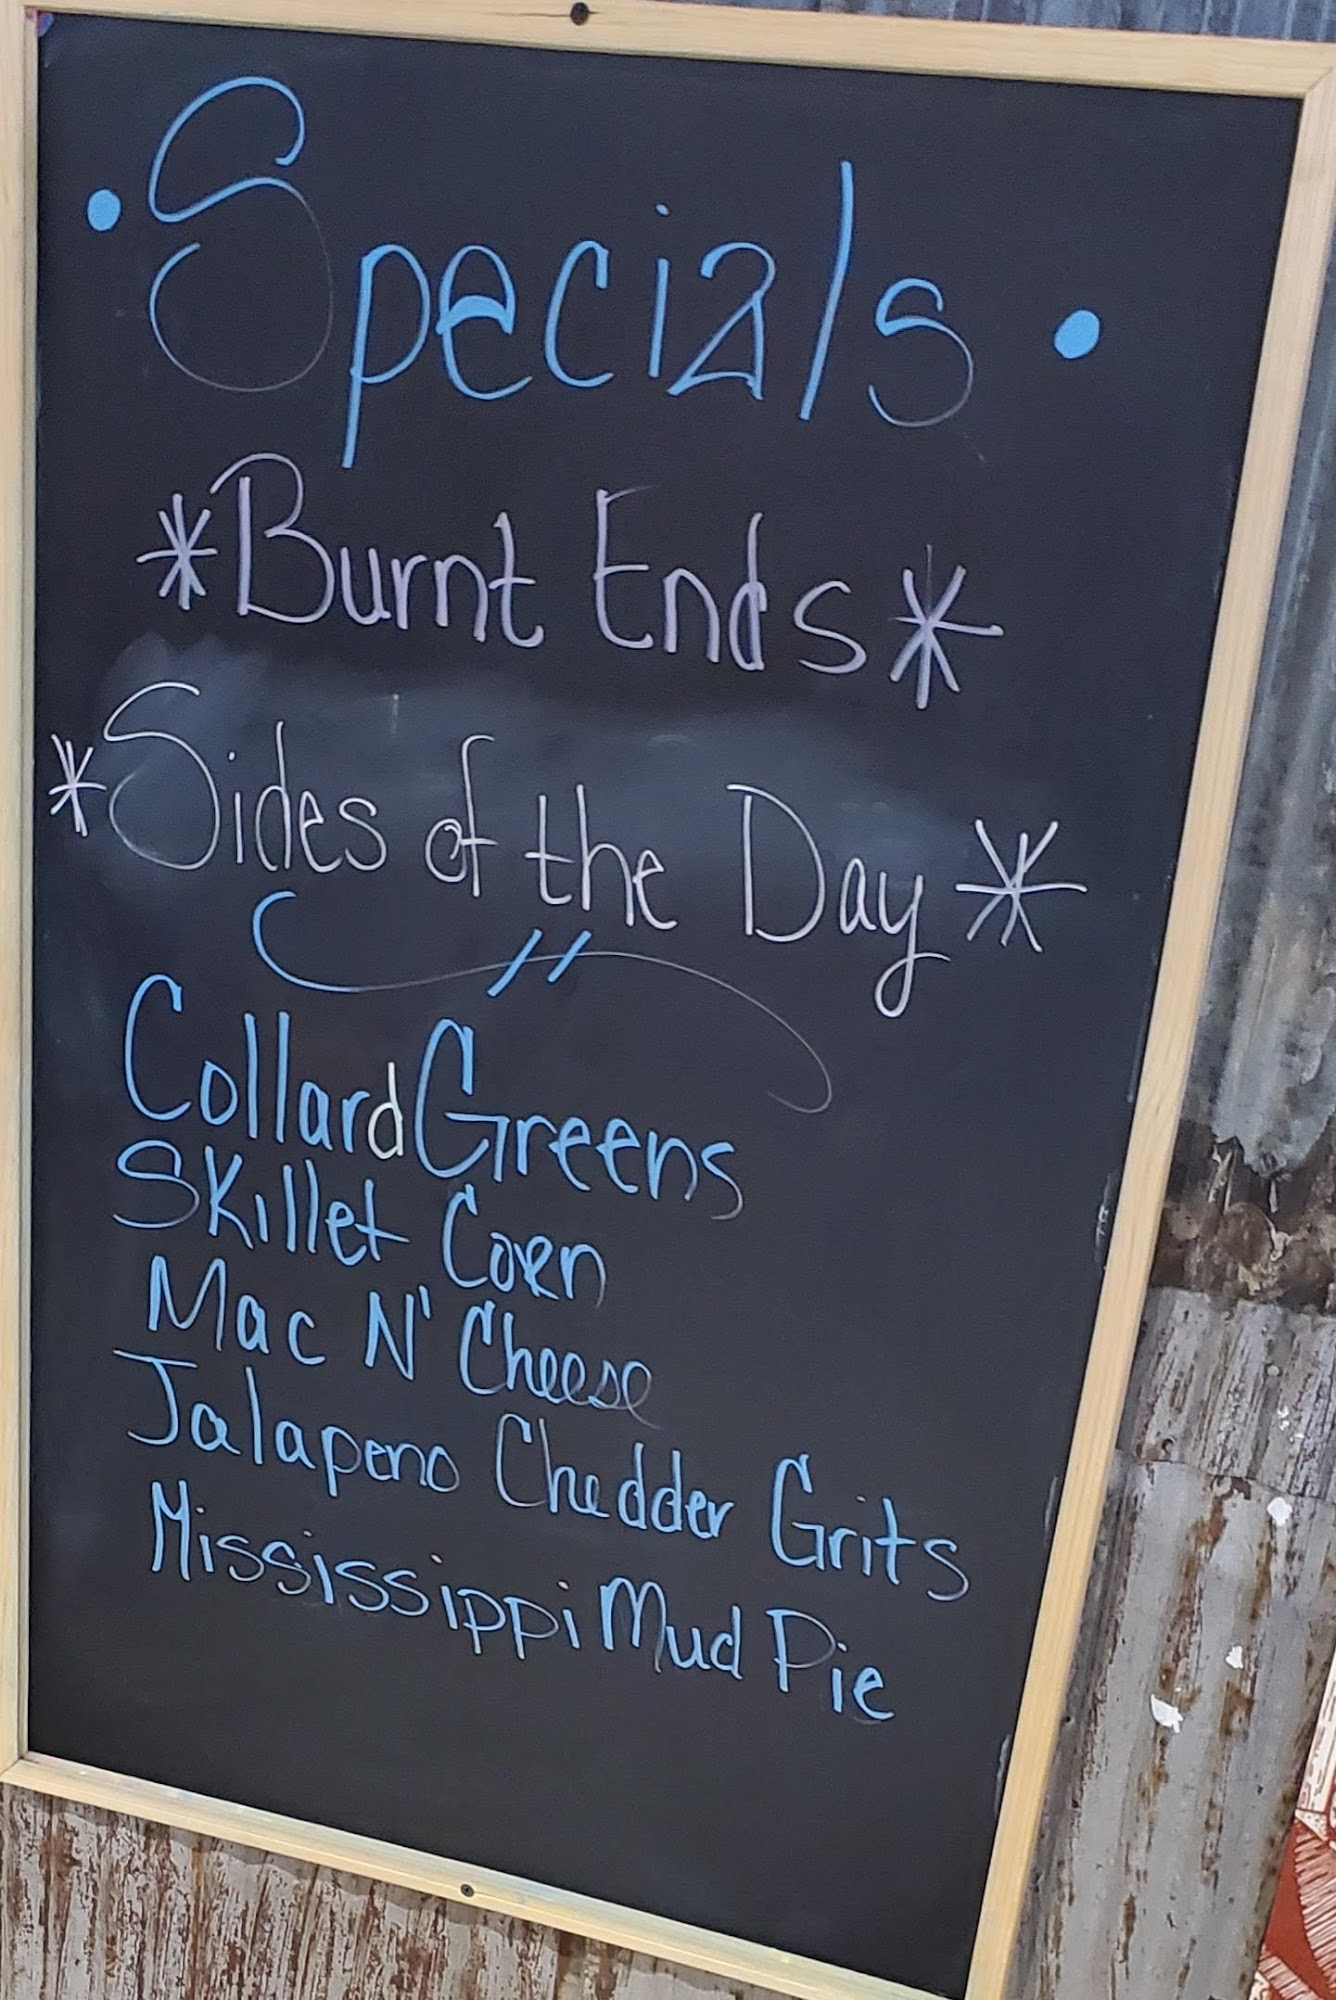 • Specials •
*Burnt Ends*
*Sides of the Day*
Collard Greens
Skillet Corn
Mac N' Cheese
Jalapeno Chedder Grits
Mississippi Mud Pie